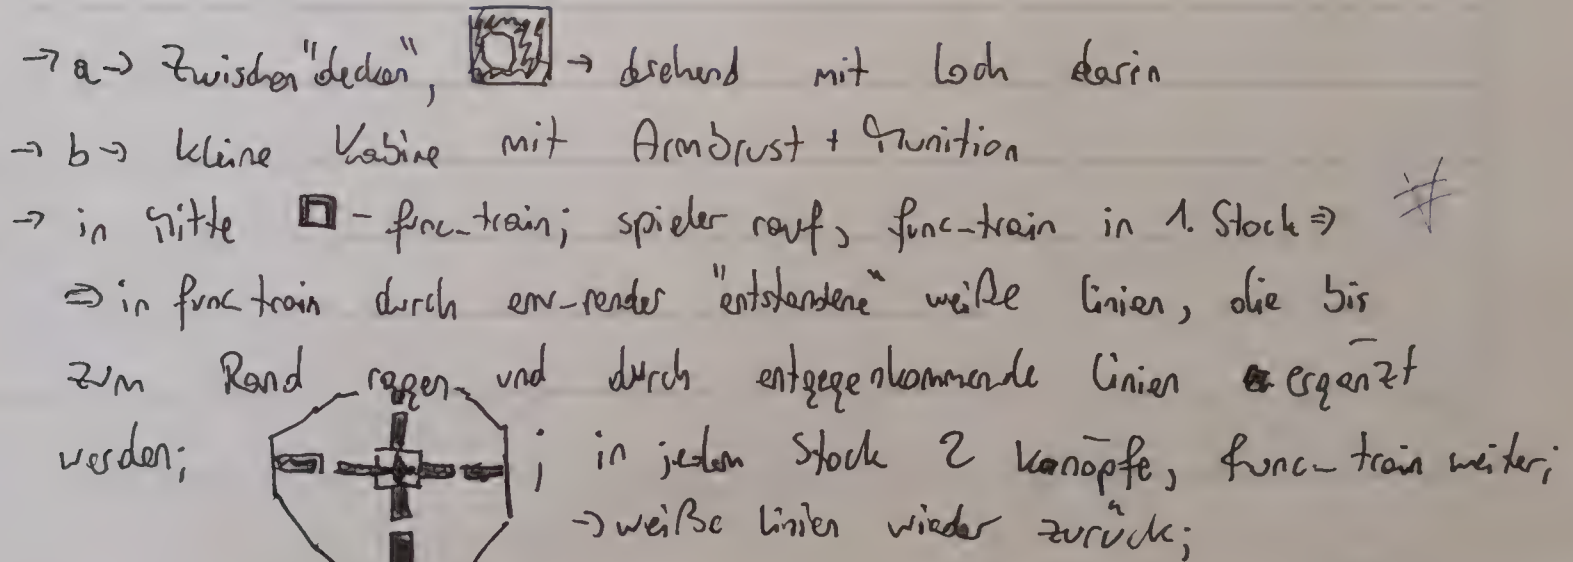 → a → Zwischen"decken", → drehend mit Loch darin
→ b → kleine Kabine mit Armbrust + Munition
→ in Mitte - func_train; spieler rauf, func_train in 1. Stock ⇒
⇒ in func train durch env_render "entstandene" weiße Linien, die bis
zum Rand ragen und durch entgegenkommende Linien ergänzt
werden; ; in jedem Stock 2 Kanöpfe, func_train weiter;
→ weiße Linien wieder zurück;